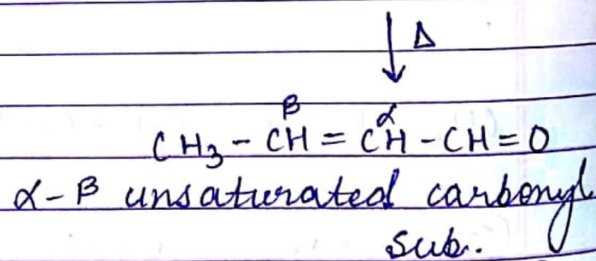 ↓ Δ
β α
CH3 - CH = CH - CH = O
α-β unsaturated carbonyl
sub.